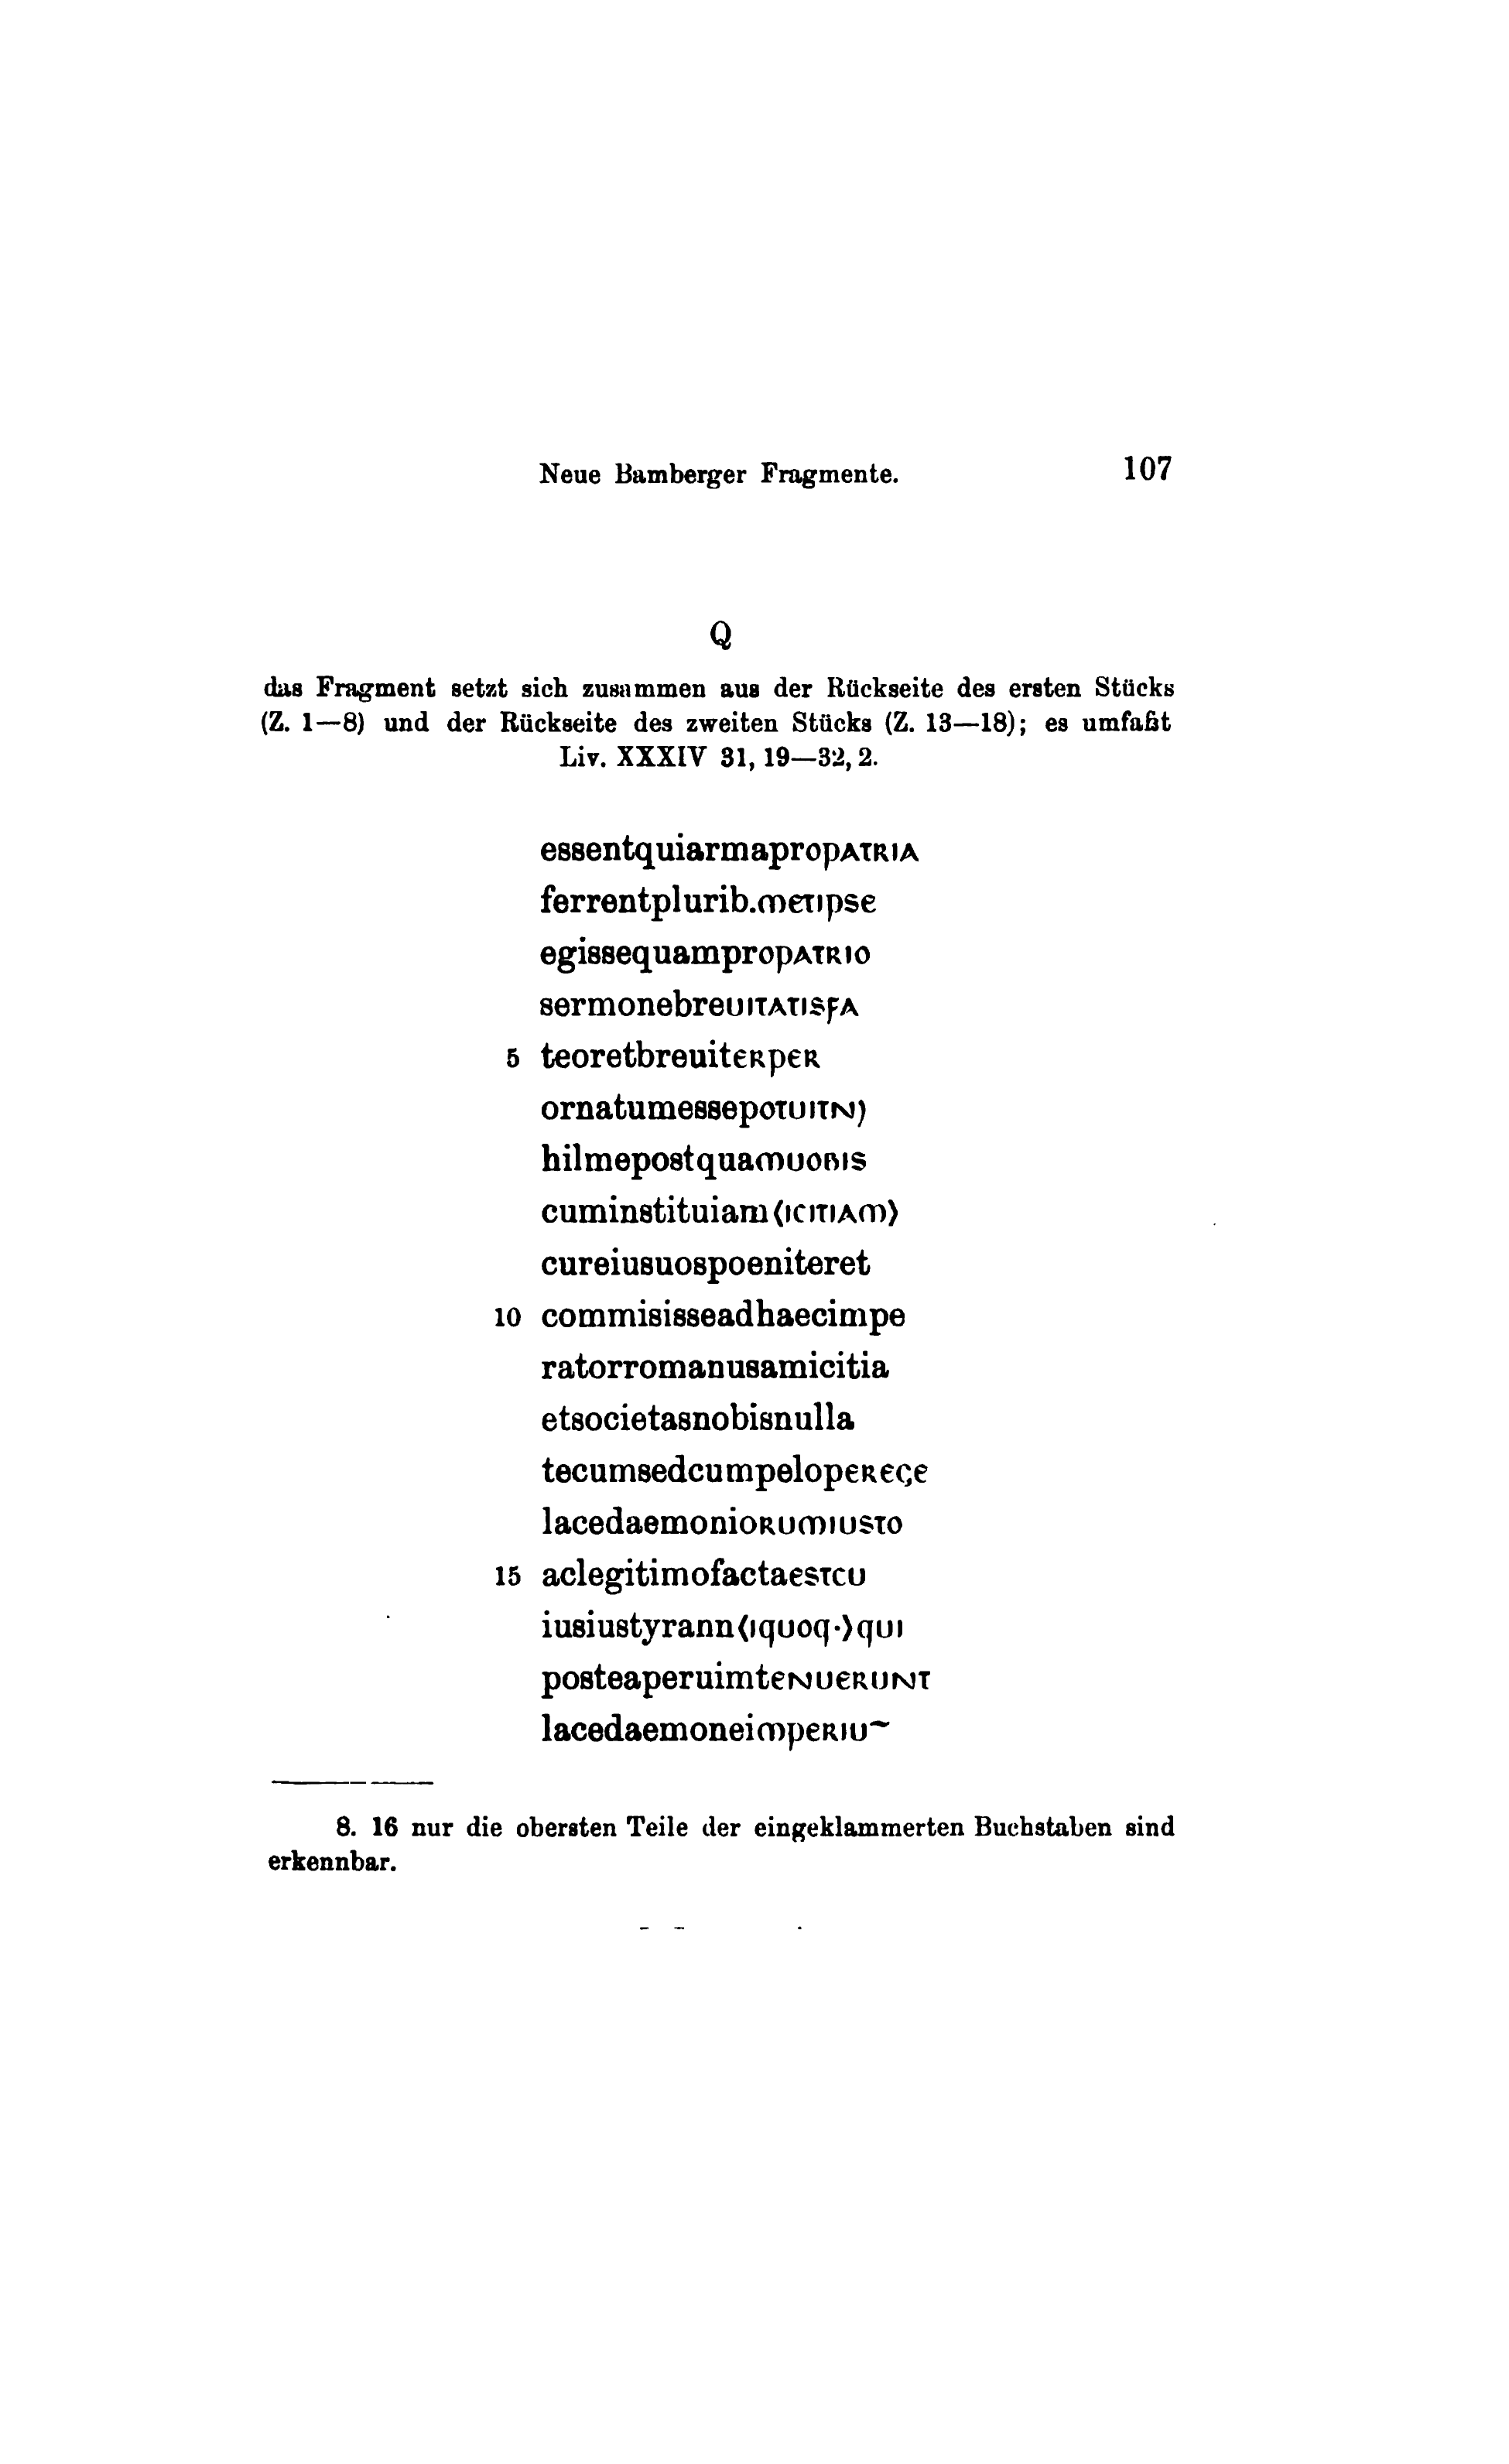 Neue Bamberger Fragmente. 107
Q
das Fragment setzt sich zusammen aus der Rückseite des ersten Stücks
(Z. 1—8) und der Rückseite des zweiten Stücks (Z. 13—18); es umfaßt
Liv. XXXIV 31, 19—32, 2.
essentquiarmapropATRIA
ferrentplurib.metipse
egissequampropATRIO
sermonebreuITATISFA
5 teoretbreuiteRpeR
ornatumessepoTUITN)
hilmepostquamuoBIS
cuminstituiam⟨ICITIAM⟩
cureiusuospoeniteret
10 commisisseadhaecimpe
ratorromanusamicitia
etsocietasnobisnulla
tecumsedcumpelopeReGe
lacedaemonioRUMIUSTO
15 aclegitimofactaeSTCU
iusiustyrann⟨IQUOQ·⟩QUI
posteaperuimteNUERUNT
lacedaemoneimpeRIU~
8. 16 nur die obersten Teile der eingeklammerten Buchstaben sind
erkennbar.